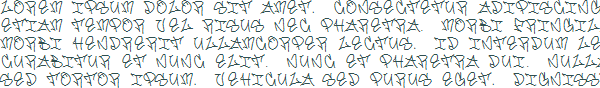 LOREM IPSUM DOLOR SIT AMET. CONSECTETUR ADIPISCING
ETIAM TEMPOR VEL RISUS NEC PHARETRA. MORBI FRINGIL
MORBI HENDRERIT ULLAMCORPER LECTUS. ID INTERDUM LE
CURABITUR ET NUNC ELIT. NUNC ET PHARETRA DUI. NULL
SED TORTOR IPSUM. VEHICULA SED PURUS EGET. DIGNISS